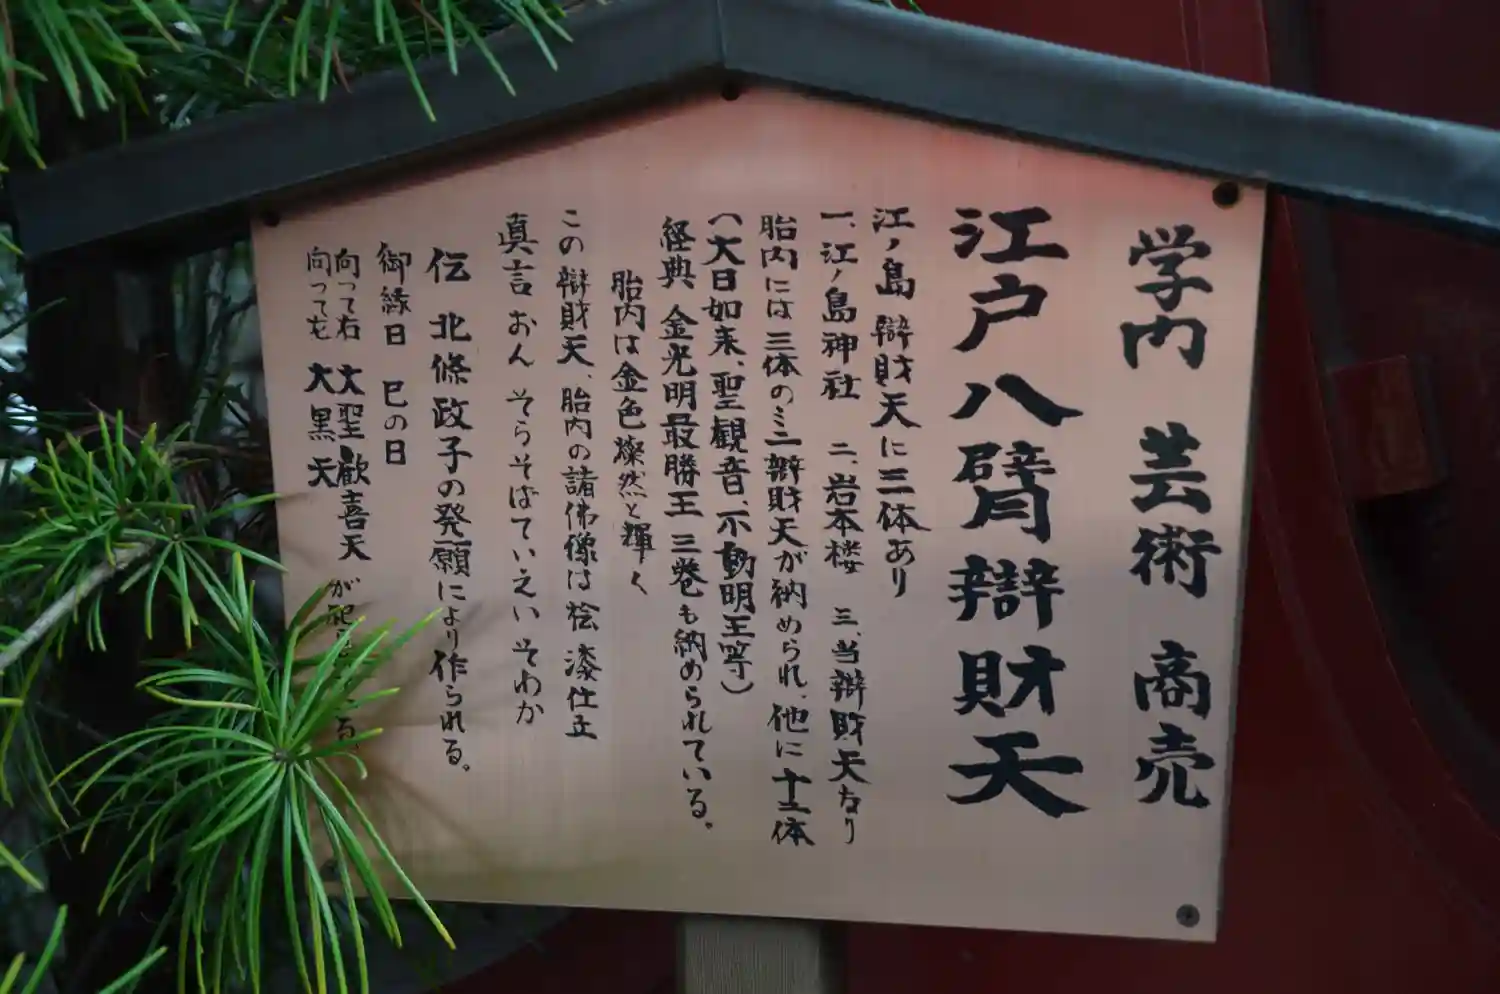 学内 芸術 商売
江戸八臂辯財天
江ノ島辯財天に三体あり
一、江ノ島神社 二、岩本楼 三、当辯財天なり
胎内には三体のミニ辯財天が納められ、他に十二体
(大日如来、聖観音、不動明王等)
経典 金光明最勝王 三巻も納められている。
胎内は金色燦然と輝く
この辯財天、胎内の諸佛像は桧 漆仕立
真言 おん そらそばていえい そわか
伝 北條政子の発願により作られる。
御縁日 巳の日
向って右 大聖歓喜天
向って左 大黒天
が
る。